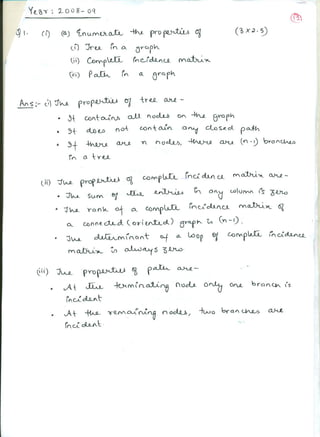 Year : 2008-09
Q1. (i) (a) Enumerate the properties of (3 x 2.5)
(i) Tree in a graph
(ii) Complete incidence matrix
(iii) Path in a graph
Ans:- i) The properties of tree are -
• It contains all nodes on the graph
• It does not contain any closed path
• If there are n nodes, there are (n-1) branches
in a tree
(ii) The properties of complete incidence matrix are -
• The sum of the entries in any column is zero
• The rank of a complete incidence matrix of
a connected (oriented) graph is (n-1).
• The determinant of a loop of complete incidence
matrix is always zero
(iii) The properties of path are -
• At the terminating node only one branch is
incident
• At the remaining nodes, two branches are
incident